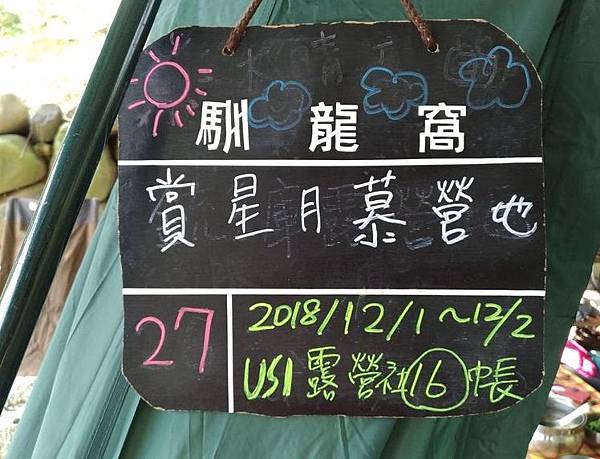 馴龍窩
賞星月慕營地
27
2018/12/1~12/2
USI露營社16帳